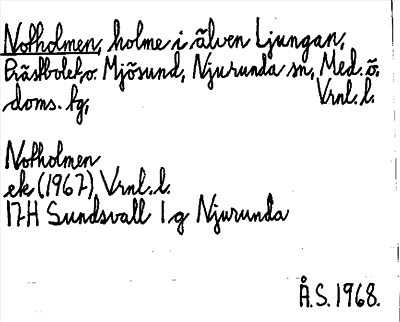 Notholmen, holme i älven Ljungan,
Prästbolet, o. Mjösund, Njurunda sn, Med. ö.
doms. fg, Vrnl. l.
Notholmen
ek (1967), Vrnl. l.
17H Sundsvall 1 g Njurunda
Å.S. 1968.